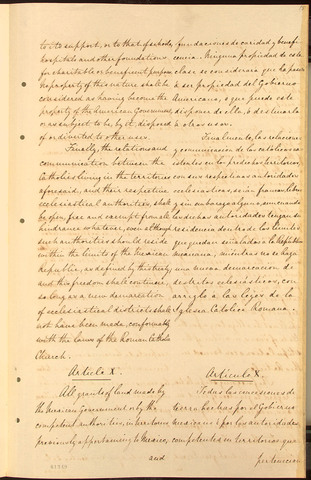 to its support, or to that of schools,
hospitals and other foundations
for charitable or beneficent purposes.
No property of this nature shall be
considered as having become the
property of the American Government,
or as subject to be, by it, disposed
of or diverted to other uses.
Finally, the relations and
communication between the
Catholics living in the territories
aforesaid, and their respective
ecclesiastical authorities, shall
be open, free and exempt from all
hindrance whatever, even although
such authorities should reside
within the limits of the Mexican
Republic, as defined by this treaty;
and this freedom shall continue,
so long as a new demarcation
of ecclesiastical districts shall
not have been made, conformably
with the laws of the Roman Catholic
Church.
Article X.
All grants of land made by
the Mexican Government or by the
competent authorities, in territories
previously appertaining to Mexico,
and
fundaciones de caridad y benefi-
cencia. Ninguna propiedad de esta
clase se considerará que ha pasado
á ser propiedad del Gobierno
Americano, ó que puede este
disponer de ella, ó destinarla
á otros usos.
Finalmente, las relaciones
y comunicacion de los catolicos ex-
istentes en los predichos territorios,
con sus respectivas autoridades
eclesiasticas, serán francas, libres
y sin embarazo alguno, aun cuando
las dichas autoridades tengan su
residencia dentro de los limites
que quedan señalados á la Republica
mexicana, mientras no se haga
una nueva demarcacion de
distritos eclesiasticos, con
arreglo á las leyes de la
Iglesia Catolica Romana.
Articulo X.
Todas las concesiones de
tierra hechas por el Gobierno
mexicano ó por las autoridades
competentes, en territorios que
pertenecieron